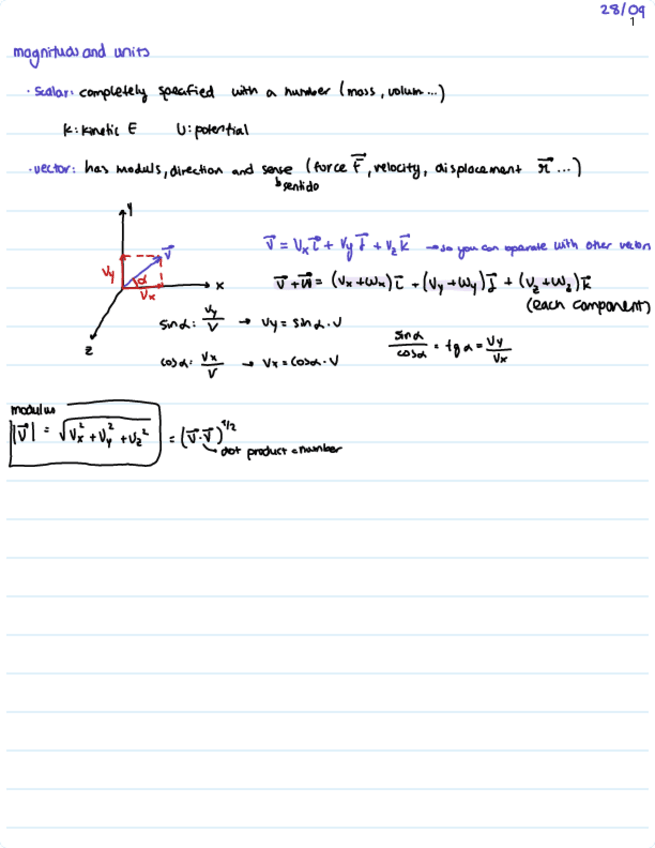 28/09
1
magnituds and units
· Scalar: completely specified with a number (mass, volum...)
K: kinetic E U: potential
· vector: has moduls, direction and sense (force F⃗, velocity, displacement r⃗...)
↳ sentido
Y
V⃗
Vy
α
Vx
X
Z
V⃗ = Vx i⃗ + Vy j⃗ + Vz k⃗ → so you can operate with other vectors
V⃗ + W⃗ = (Vx + Wx) i⃗ + (Vy + Wy) j⃗ + (Vz + Wz) k⃗
(each component)
sin α : Vy/V → Vy = sin α · V
cos α : Vx/V → Vx = cos α · V
sin α / cos α = tg α = Vy/Vx
modulus
|V⃗| = √(Vx² + Vy² + Vz²) = (V⃗ · V⃗)^1/2
↳ dot product = number